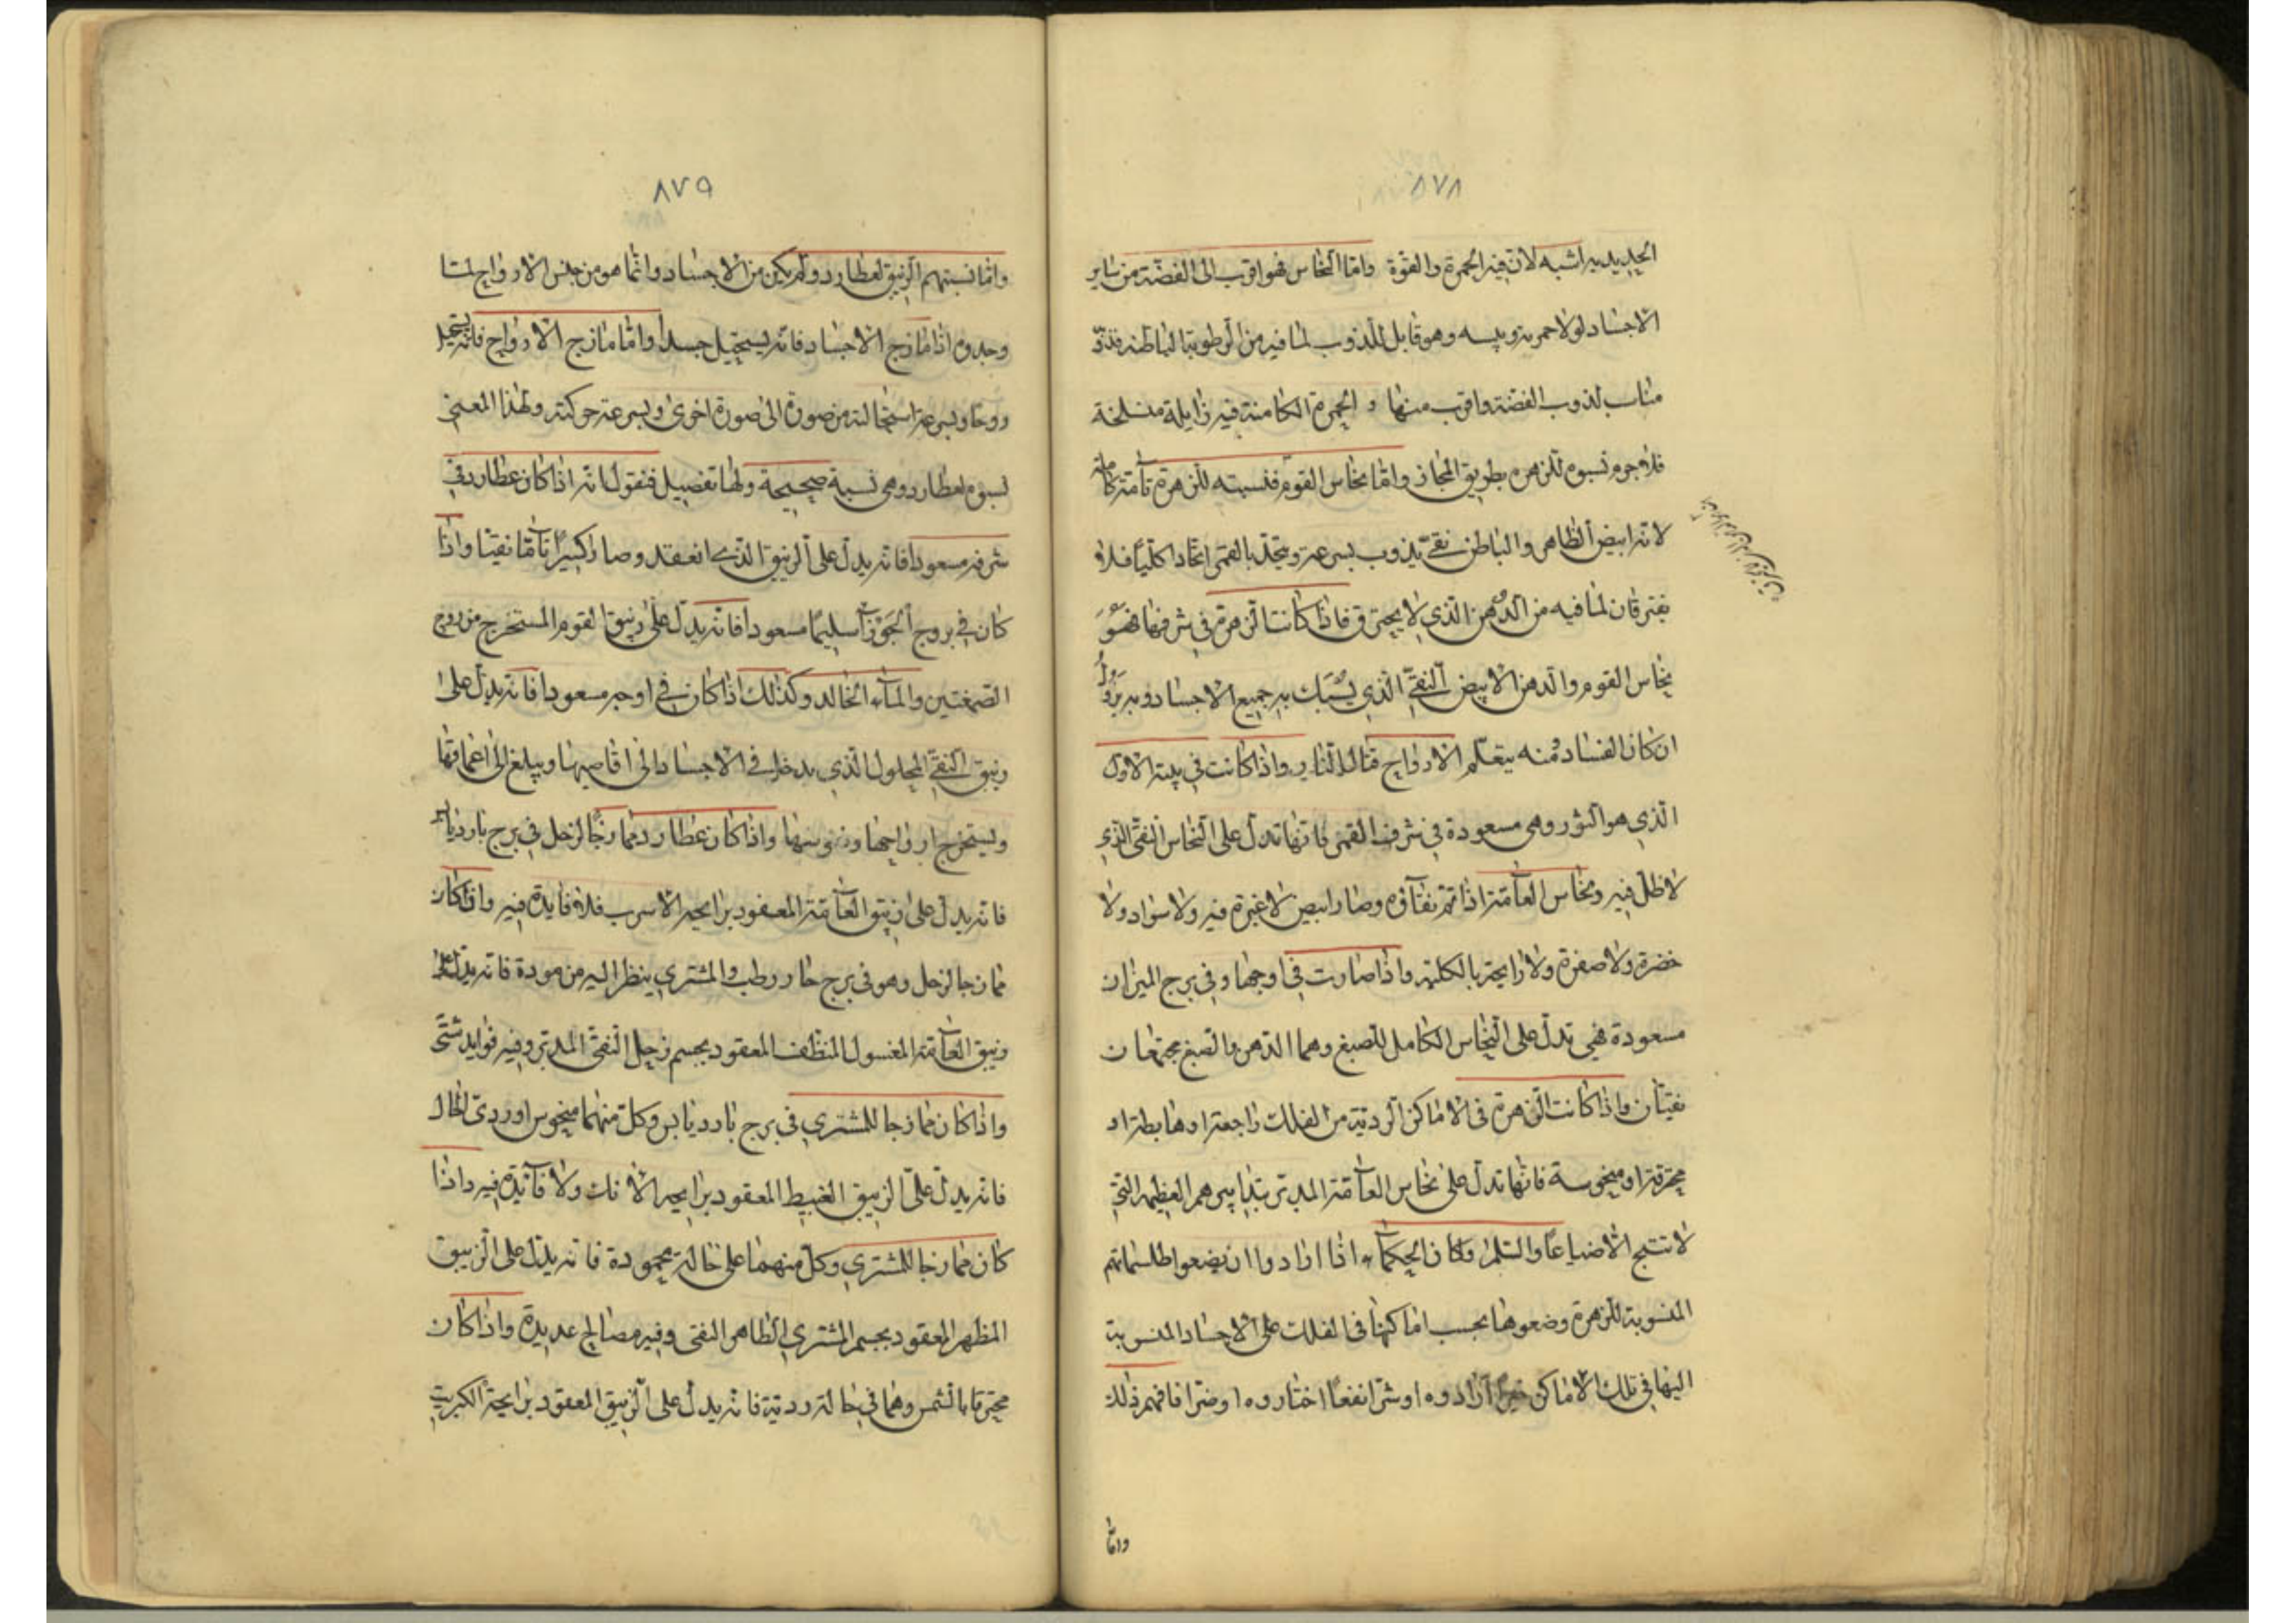 ٨٧٨
الحديد به اشبه لان فيه الحمرة والقوة واما النحاس فهو اقرب الى الفضة من ساير
الاجساد لولا حمرته ويبسه وهو قابل للذوب لما فيه من الرطوبة الباطنة فذوبه
مناسب لذوب الفضة واقرب منها و الحمرة الكامنة فيه زايلة منسلخة
فلا جرم نسبوه للزهره بطريق المجاز واما نحاس القوم فنسبته للزهرة تامة كاملة
لانه ابيض الظاهر والباطن نقي يذوب بسرعة ويتحد بالقمر اتحادا كليا فلا
يفترقان لما فيه من الدهن الذي لا يحترق فاذا كانت الزهرة في شرفها فهو
نحاس القوم والدهن الابيض النقي الذي يسبك به جميع الاجساد وبه يزول
ان كان الفساد ومنه يتعلم الارواح قتال النار واذا كانت في بيته الاول
الذي هو الثور وهى مسعودة في شرف القمر فانها تدل على النحاس النقى الذي
لا ظل فيه ونحاس العامة اذا تم نقآؤه وصار ابيض لا غبرة فيه ولا سواد ولا
خضرة ولا صفرة ولا رايحة بالكلية واذا صارت في اوجها وفى برج الميزان
مسعودة فهى تدل على النحاس الكامل للصبغ وهما الدهن والصبغ مجتمعان
نقيان واذا كانت الزهرة فى الاماكن الردية من الفلك راجعة او هابطة او
محترقة او منحوسة فانها تدل على نحاس العامة المدبر بتدابيرهم العظيمه التى
لا تنتج الا ضياعا والسلم وكان الحكمآء اذا ارادوا ان يضعوا طلسماتهم
المنسوبة للزهرة وضعوها بحسب اماكنها فى الفلك على الاجساد المنسوبة
اليها في تلك الاماكن خيرا ارادوه او شرا نفعا اختاروه او ضرا فافهم ذلك
واما
٨٧٩
واما نسبتهم الزيبق لعطارد ولم يكن من الاجساد وانما هو من جنس الارواح لما
وجدوه اذا مازج الاجساد فانه يستحيل جسدا واما مازج الارواح فانه يستحيل
روحا وبسرعة استحالته من صورة الى صورة اخرى وبسرعة حركته ولهذا المعنى
نسبوه لعطارد وهى نسبة صحيحة ولها تفصيل فنقول انه اذا كان عطارد في
شرفه مسعودا فانه يدل على الزيبق الذي انعقد وصار اكسيرا تاما نقيا واذا
كان في بروج الجوزآ سليما مسعودا فانه يدل على زيبق القوم المستخرج من روح
الصمغتين والمآء الخالد وكذلك اذا كان في اوجه مسعودا فانه يدل على
زيبق النقي المحلول الذي يدخل في الاجساد الى اقاصيها ويبلغ الى اعماقها
ويستخرج ارواحها ونفوسها واذا كان عطارد ممازجا لزحل في برج بارد يابس
فانه يدل على زيبق العامة المعقود برايحه الاسرب فلا فايدة فيه واذا كان
ممازجا لزحل وهو فى برج حار رطب والمشتري ينظر اليه من مودة فانه يدل على
زيبق العامة المغسول المنظف المعقود بجسم زحل النقى المدبر وفيه فوايد شتى
واذا كان ممازجا للمشتري في برج بارد يابس وكل منهما منحوس او ردى الحال
فانه يدل على الزيبق الغبيط المعقود برايحه الانك ولا فآيدة فيه واذا
كان ممازجا للمشتري وكل منهما على حالة محمودة فانه يدل على الزيبق
المظهر المعقود بجسم المشتري الظاهر النقى وفيه مصالح عديدة واذا كان
محترقا بالشمس وهما في حالة ردية فانه يدل على الزيبق المعقود برايحة الكبريت